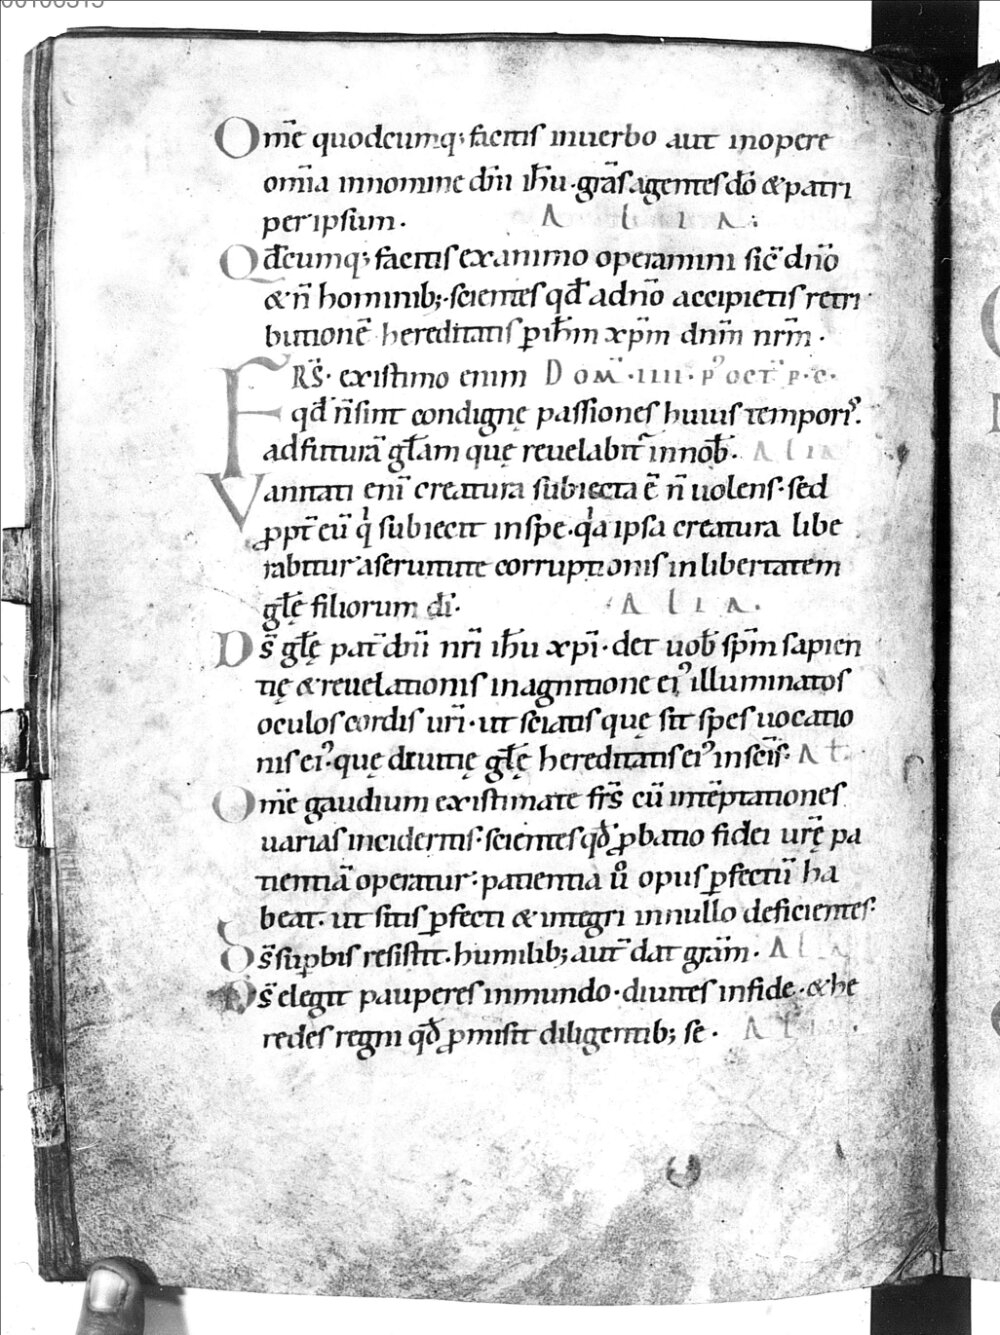 Om̄e quodcumq; facitis inuerbo aut inopere
om̄ia innomine dn̄i ih̄u · gr̄as agentes dō & patri
per ipsum . A l i a :
Qd̄cumq; facitis exanimo operamini sic̄ dn̄o
& n̄ hominib; · scientes qd̄ adn̄o accipietis retri
butionē hereditatis ꝑ ih̄m xp̄m dn̄m nr̄m .
FRS̄ · existimo enim Dom̄ · IIII · p' oct̄ p · c ·
qd̄ n̄ sint condignę passiones huius tempori' .
ad futurā gl̄am quę reuelabit̄ innob̄ . A l i a
Vanitati enī creatura subiecta ē n̄ uolens · sed
ꝓpt̄ eū qi subiecit inspe · qa ipsa creatura libe
rabitur aseruitute corruptionis in libertatem
gl̄ę filiorum dī . A l i a .
Ds̄ gl̄ę pat̄ dn̄i nr̄i ih̄u xp̄i · det uob̄ sp̄m sapien
tię & reuelationis inagnitione ei' illuminatos
oculos cordis ur̄i · ut sciatis quę sit spes uocatio
nis ei' · quę diuitię gl̄ę hereditatis ei' insc̄is · A l̄ .
Om̄e gaudium existimate fr̄s cū intēptationes
uarias incideritis · scientes qđ ꝓbatio fidei ur̄ę pa
tientiā operatur : patientia ū opus ꝑfectū ha
beat . ut sitis ꝑfecti & integri innullo deficientes ·
Ds̄ suꝑbis resistit . humilib; aut̄ dat grām . A l
Ds̄ elegit pauperes inmundo · diuites infide · & he
redes regni qđ ꝓmisit diligentib; se . A l i a .